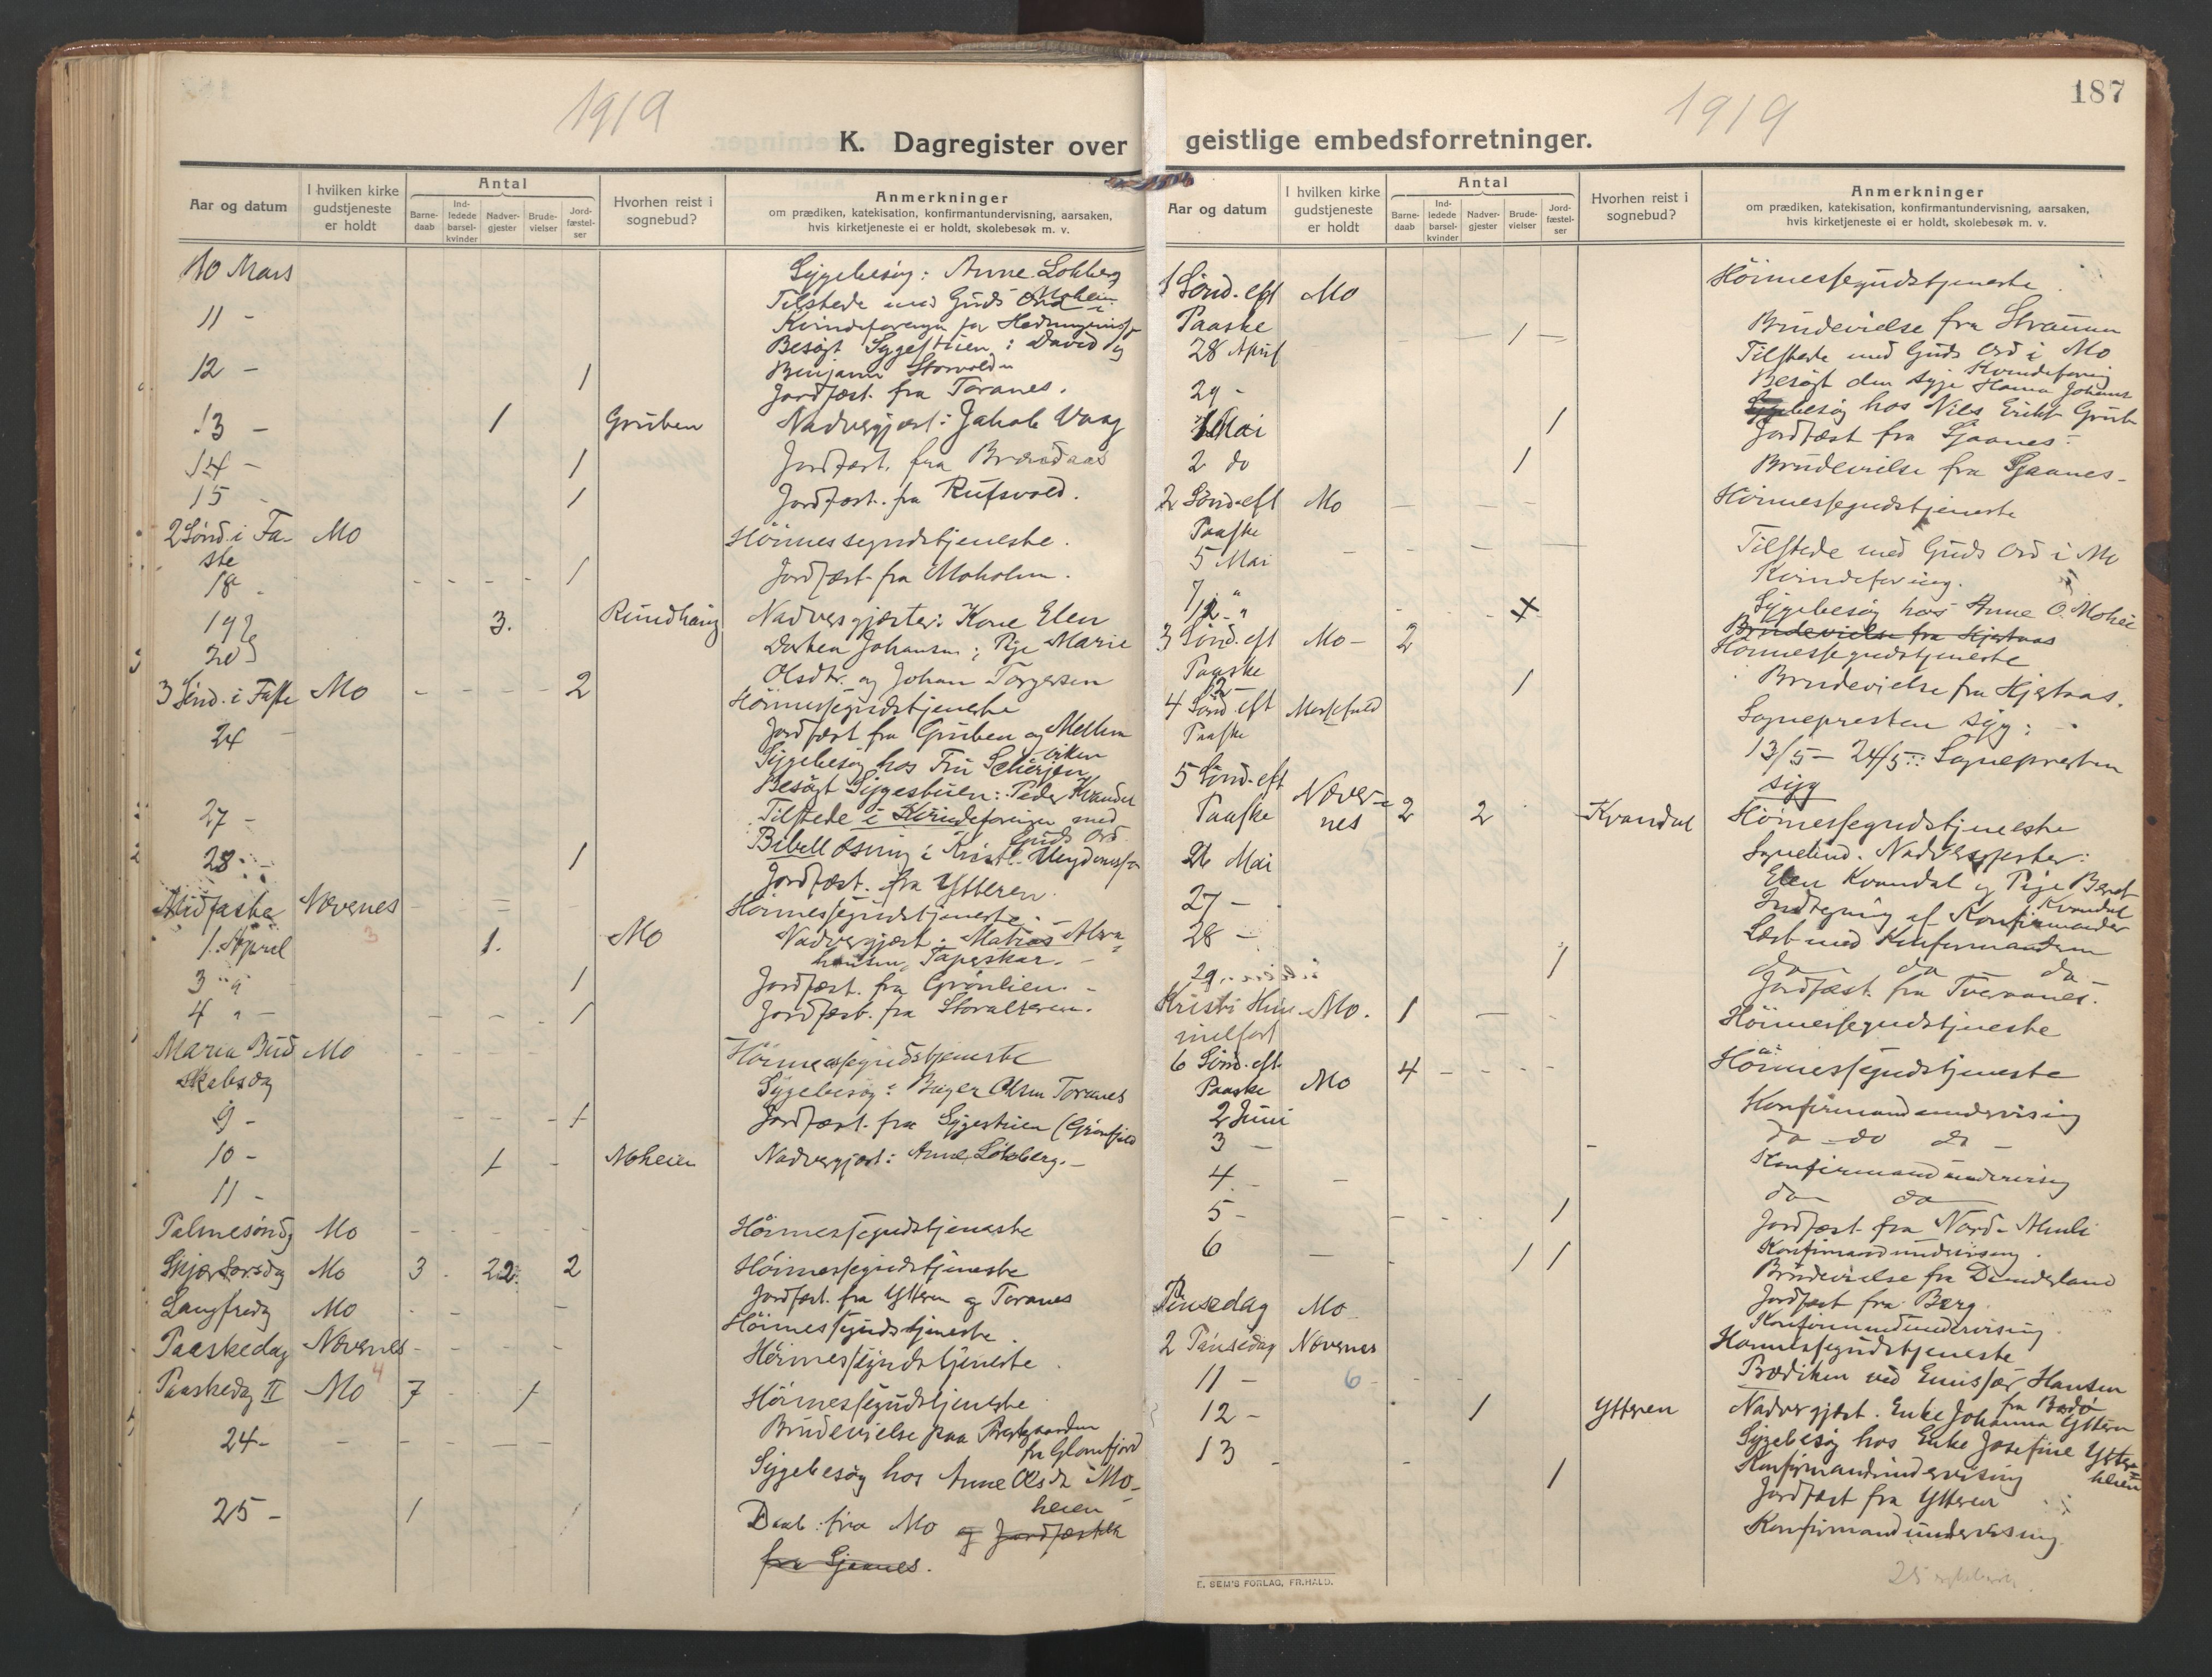 1919
K. Dagregister over
Aar og datum
I hvilken kirke gudstjeneste er holdt
Antal
Barne-daab
Ind-ledede barsel-kvinder
Nadver-gjester
Brude-vielser
Jord-fæstel-ser
Hvorhen reist i sognebud?
Anmerkninger
om prædiken, katekisation, konfirmantundervisning, aarsaken,
hvis kirketjeneste ei er holdt, skolebesøk m. v.
10 Mars Sygebesøg: Anne Lohberg
Moheien
Tilstede med Guds Ord i
11 - Kvindeforengn for
Besøgt Sygestuen: David og
12 - 1 Benjamin Storvold
Jordfæst. fra Toranes.
13 - 1 Gruben Nadvergjæst: Jakob Vaag
14 - 1 Jordfæst. fra Brændaas
15 - 1 Jordfæst. fra Rufsvold.
2 Sønd. i Fa- Mo Höimessegudstjeneste.
ste
18 - - - - - 1 Jordfæst fra Moholm.
19 & 3. Rundhaug Nadvergjæster: Kone Elen
20 Dorthea Johansen; Pige Marie
Olsdtr. og Johan Torgersen
3 Sønd. i Faste Mo - - - - 2 Höimessegudstjeneste
24 - Jordfæst fra Gruben og Mellem
viken
Sygebesøg hos Fru
Besøgt Sygestuen: Peder Kvandal
27 - Tilstede i Kvindeforeningen med
Guds Ord
28 - 1 Bibellæsning i Kristl. Ungdomsfor
Jordfæst. fra Ytteren
Midfaste Nævernes Höimessegudstjeneste.
3
1. April 1. Mo Nadvergjæst: Matias Abra
hamsen, Tapeskar. -
3 " 1 Jordfæst. fra Grønlien. -
4 " - - - - 1 Jordfæst. fra Storalteren.
Maria Bud Mo - - - - Höimessegudstjeneste
skabsdag Sygebesøg: Birger Olsen Toranes
9 - - - - 1 Jordfæst. fra Sygestuen (Grønfjeld
10 - 1 - Moheien Nadvergjæst: Anne Lohberg. -
11 -
Palmesøndg Mo - - - - - Höimessegudstjeneste
Skjærtorsdg Mo 3 22 2 Höimessegudstjeneste
Jordfæst. fra Ytteren og Toranes
Langfredg Mo - - - Höimessegudstjeneste.
Paaskedag Nævernes - - - - Höimessegudstjeneste.
4
Paaskedag II Mo 7 1 Höimessegudstjeneste
Brudevielse paa Prestegaarden
fra Glomfjord
24 - - - - - - Sygebesøg hos Anne Olsdtr Mo-
heien
25 - 1 1 Daab: fra Mo og Jordfæstelse
fra Sjaanes.
1919
187
geistlige embedsforretninger.
Aar og datum
I hvilken kirke gudstjeneste er holdt
Antal
Barne-daab
Ind-ledede barsel-kvinder
Nadver-gjester
Brude-vielser
Jord-fæstel-ser
Hvorhen reist i sognebud?
Anmerkninger
om prædiken, katekisation, konfirmantundervisning, aarsaken,
hvis kirketjeneste ei er holdt, skolebesøk m. v.
1 Sønd. eft Mo Höimessegudstjeneste.
Paaske - - 1 - Brudevielse fra Straumen
28 April Tilstede med Guds Ord i Mo
Kvindeforening
29 - Besøgt den syge Hanna Johans
Sygebesøg hos Nils Erikt Grub
1 Mai 1 Jordfæst fra Sjaanes.
2 do 1 Brudevielse fra Sjaanes -
2 Sønd. eft Mo - - - Höimessegudstjeneste
Paaske
5 Mai - - - - Tilstede med Guds Ord i Mo
Kvindeforening.
7 " Sygebesøg hos Anne O. Mohei
12 " - - 1 Brudevielse fra Hjertaas
3 Sønd. eft Mo - 2 Höimessegudstjeneste
Paaske
12 - 1 Brudevielse fra Hjertaas.
4 Sønd. eft Sognepresten syg:
Paaske 13/5 - 24/5: Sognepresten
syg
5 Sønd. eft Næver-
Paaske nes 2 2 Kvandal Höimessegudstjeneste
26 Mai Nadvergjæster:
Elen Kvandal og Pige Berit
Kvandal
27 - Indtegning af Konfirmander
28 - Læst med Konfirmanderne
da - da - da -
29 1 Jordfæst. fra Tverranes.
Kristi Him- Mo. 1 - Höimessegudstjeneste
melfart
6 Sønd. eft Mo 4 - - - Höimessegudstjeneste
Paaske
2 Juni Konfirmandundervisning
3 - da - do do -
4 - - Konfirmandundervisng
da - da -
5 - - - 1 Jordfæst fra Nord-
Konfirmandundervisning.
6 - - 1 1 Brudevielse fra Dunderland
Jordfæst fra Berg.
Konfirmandundervisning.
Pinsedag Mo Höimessegudstjeneste
2 Pinsedag Nævernes Prædiken ved Emissær Hansen
fra Bodø
11 - 6 -
12 - 1 Ytteren Nadvergjæst. Enke Johanna Ytteren
13 - - Sygebesøg hos Enke Josefine Ytter-
heien
1 Konfirmandundervisning
Jordfæst fra Ytteren
Konfirmandundervisning
25
E. SEM'S FORLAG, FR.HALD.